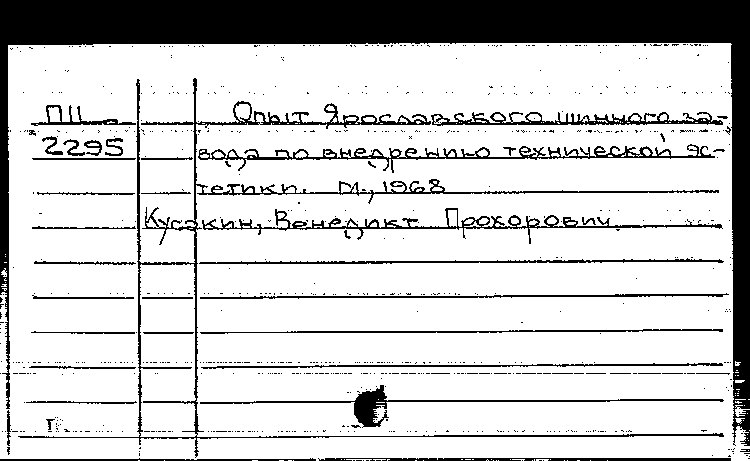 П11 Опыт Ярославского шинного за-
2295 вода по внедрению технической эс-
тетики. М., 1968
Кусакин, Венедикт Прохорович.